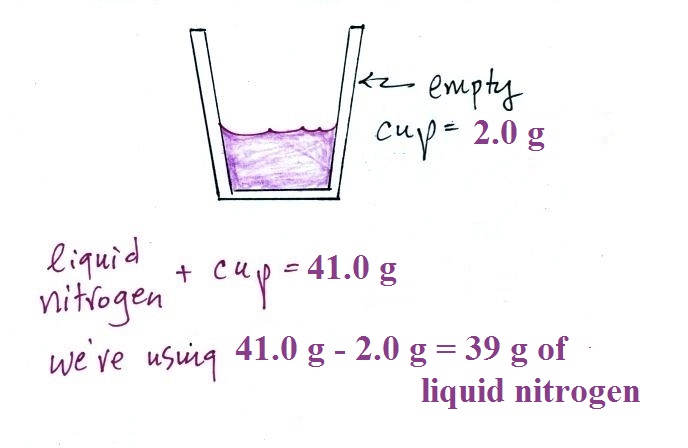 empty
cup = 2.0 g
liquid
nitrogen + cup = 41.0 g
we've using 41.0 g - 2.0 g = 39 g of
liquid nitrogen